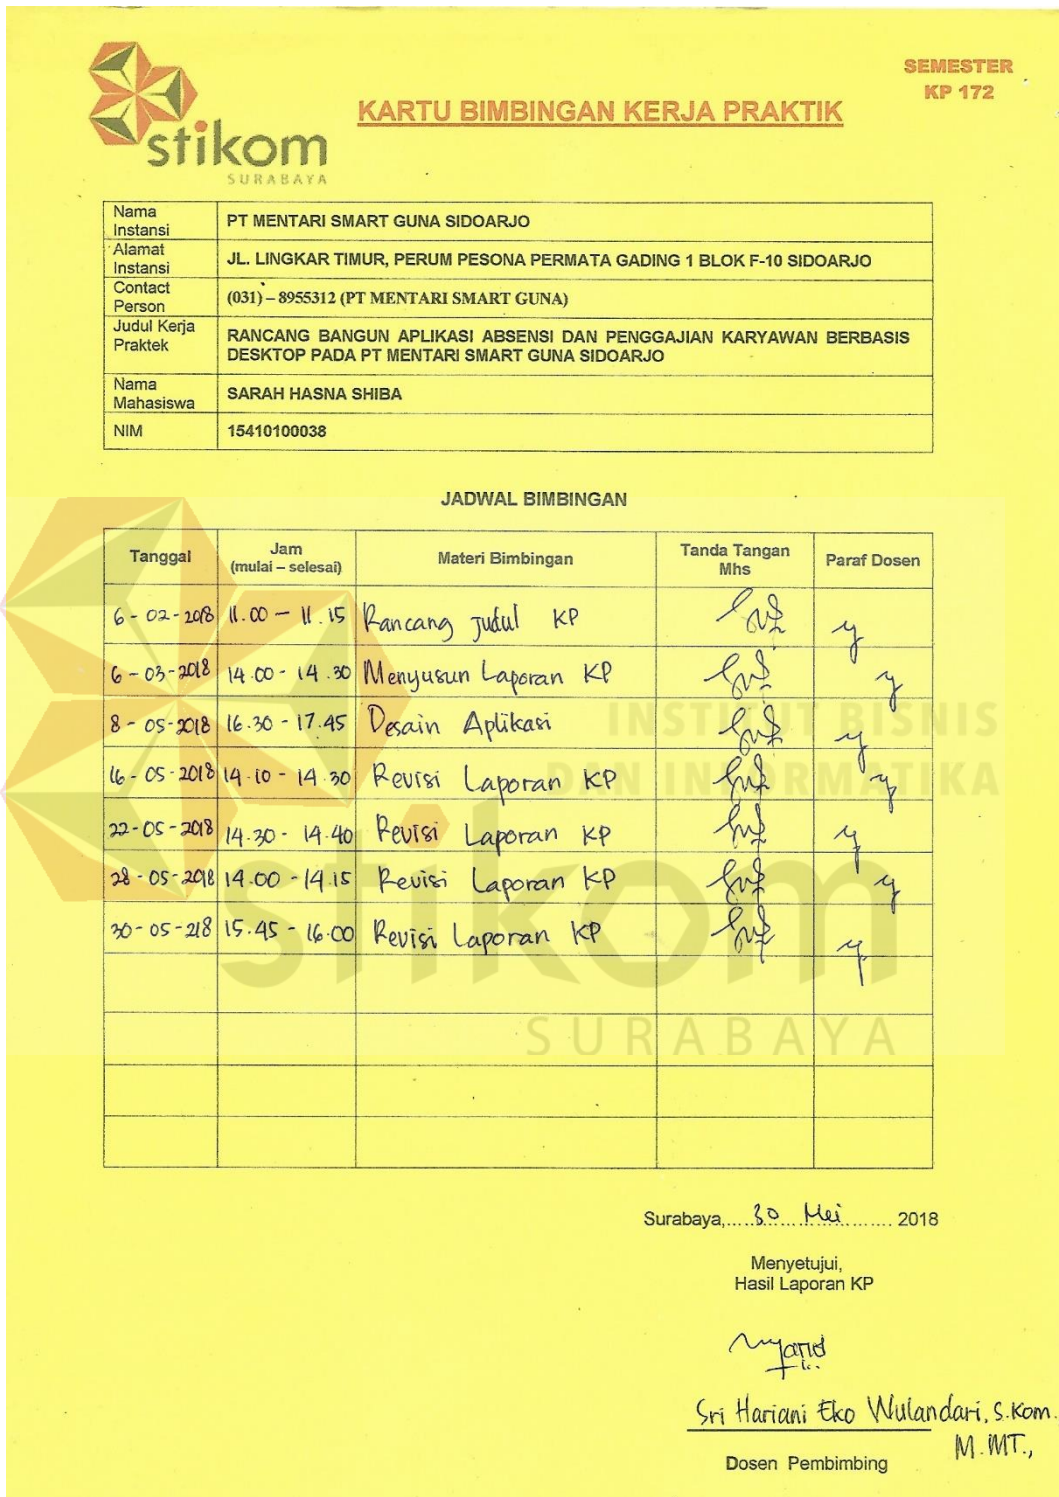 stikom
SURABAYA
KARTU BIMBINGAN KERJA PRAKTIK
SEMESTER
KP 172
Nama Instansi PT MENTARI SMART GUNA SIDOARJO
Alamat Instansi JL. LINGKAR TIMUR, PERUM PESONA PERMATA GADING 1 BLOK F-10 SIDOARJO
Contact Person (031) – 8955312 (PT MENTARI SMART GUNA)
Judul Kerja Praktek RANCANG BANGUN APLIKASI ABSENSI DAN PENGGAJIAN KARYAWAN BERBASIS
DESKTOP PADA PT MENTARI SMART GUNA SIDOARJO
Nama Mahasiswa SARAH HASNA SHIBA
NIM 15410100038
JADWAL BIMBINGAN
Tanggal Jam (mulai – selesai) Materi Bimbingan Tanda Tangan Mhs Paraf Dosen
6 - 02 - 2018 11.00 – 11.15 Rancang Judul KP
6 - 03 - 2018 14.00 - 14.30 Menyusun Laporan KP
8 - 05 - 2018 16.30 - 17.45 Desain Aplikasi
16 - 05 - 2018 14.10 - 14.30 Revisi Laporan KP
22 - 05 - 2018 14.30 - 14.40 Revisi Laporan KP
28 - 05 - 2018 14.00 - 14.15 Revisi Laporan KP
30 - 05 - 218 15.45 - 16.00 Revisi Laporan KP
INSTITUT BISNIS
DAN INFORMATIKA
stikom
SURABAYA
Surabaya, 30 Mei 2018
Menyetujui,
Hasil Laporan KP
Sri Hariani Eko Wulandari, S.Kom.
M.MT.,
Dosen Pembimbing